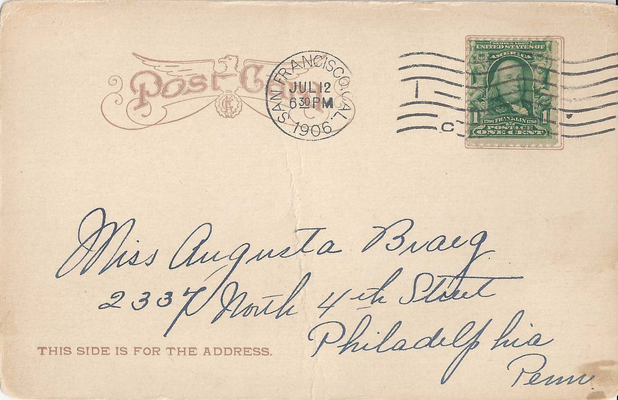 Post Card
SAN FRANCISCO, CAL.
JUL 12
6 30 PM
1906
C
UNITED STATES OF
AMERICA
1 FRANKLIN 1
POSTAGE
ONE CENT
Miss Augusta Braeg
2337 North 4th Street
Philadelphia
Penn
THIS SIDE IS FOR THE ADDRESS.